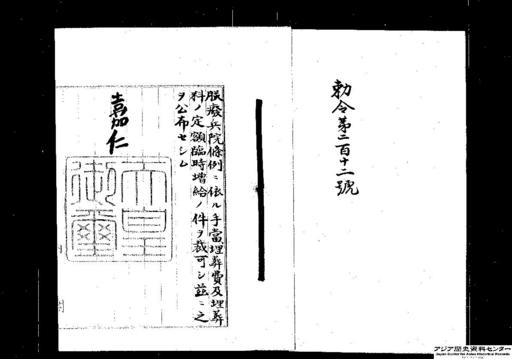 勅令第二百十二號
朕廢兵院條例ニ依ル手當埋葬費及埋葬
料ノ定額臨時增給ノ件ヲ裁可シ茲ニ之
ヲ公布セシム
嘉仁
天皇
御璽
アジア歴史資料センター
Japan Center for Asian Historical Records